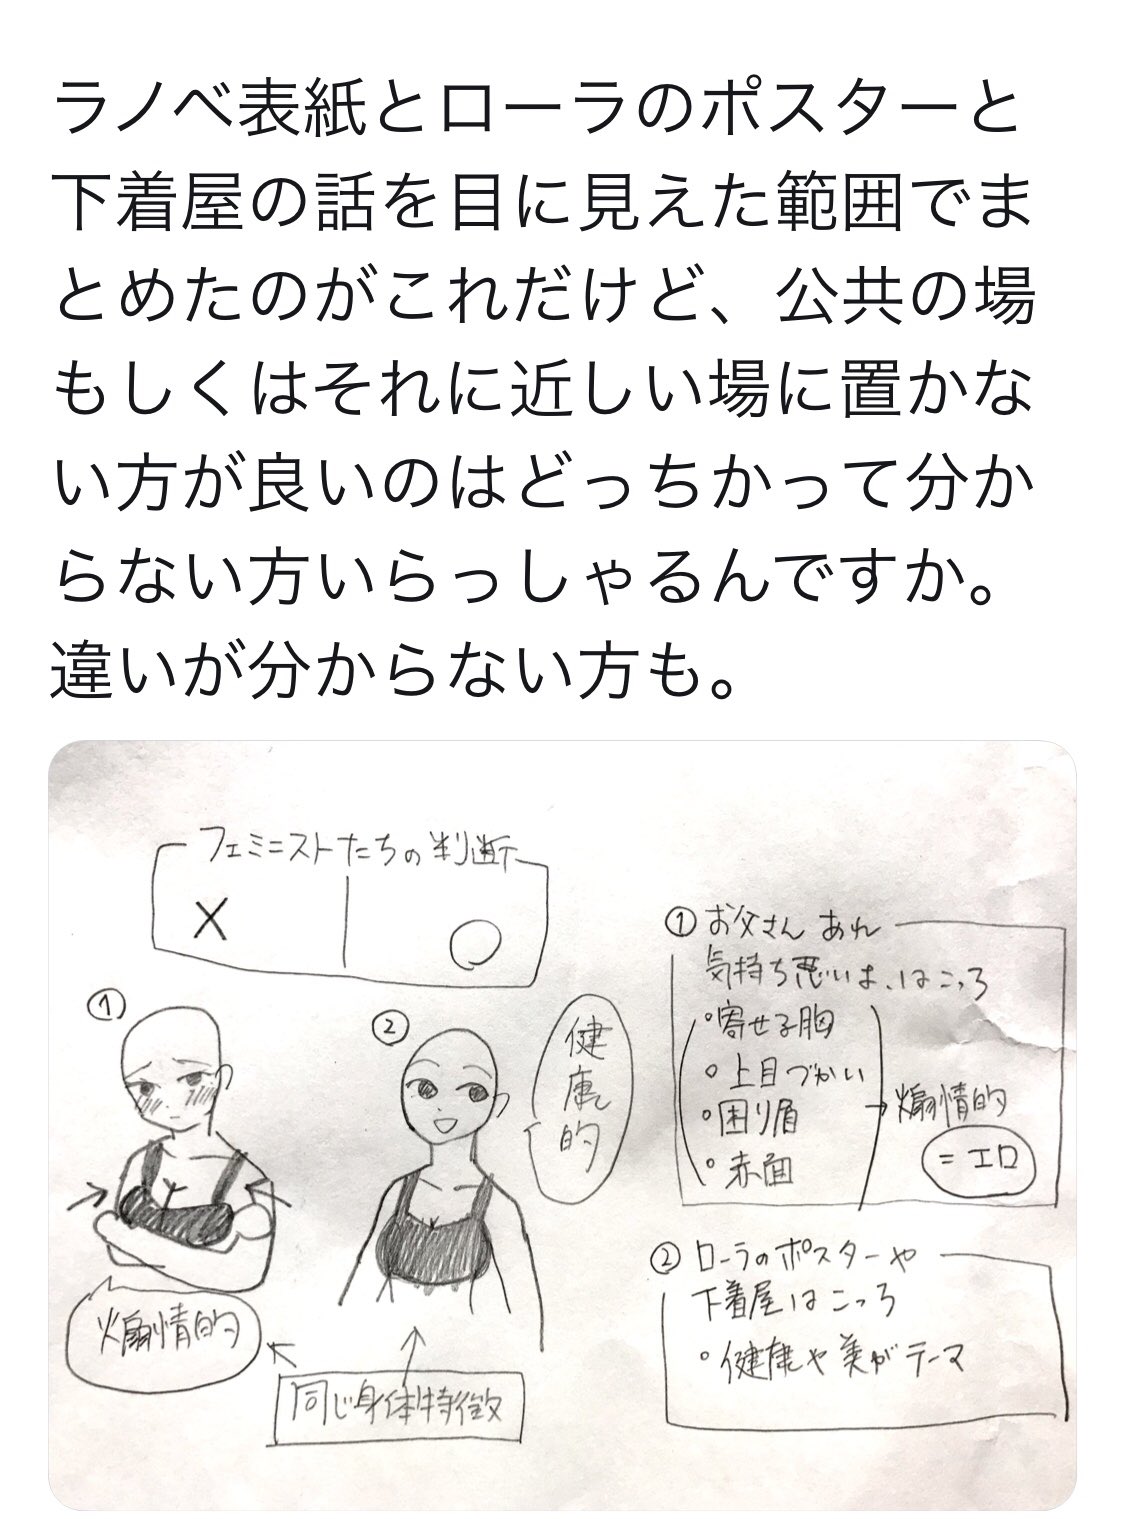 ラノベ表紙とローラのポスターと
下着屋の話を目に見えた範囲でま
とめたのがこれだけど、公共の場
もしくはそれに近しい場に置かな
い方が良いのはどっちかって分か
らない方いらっしゃるんですか。
違いが分からない方も。
フェミニストたちの判断
X ○
①
②
健康的
煽情的
同じ身体特徴
① お父さん あれ
気持ち悪いよ、はこっち
・寄せる胸
・上目づかい
・困り眉
・赤面
→煽情的
=エロ
② ローラのポスターや
下着屋はこっち
・健康や美がテーマ